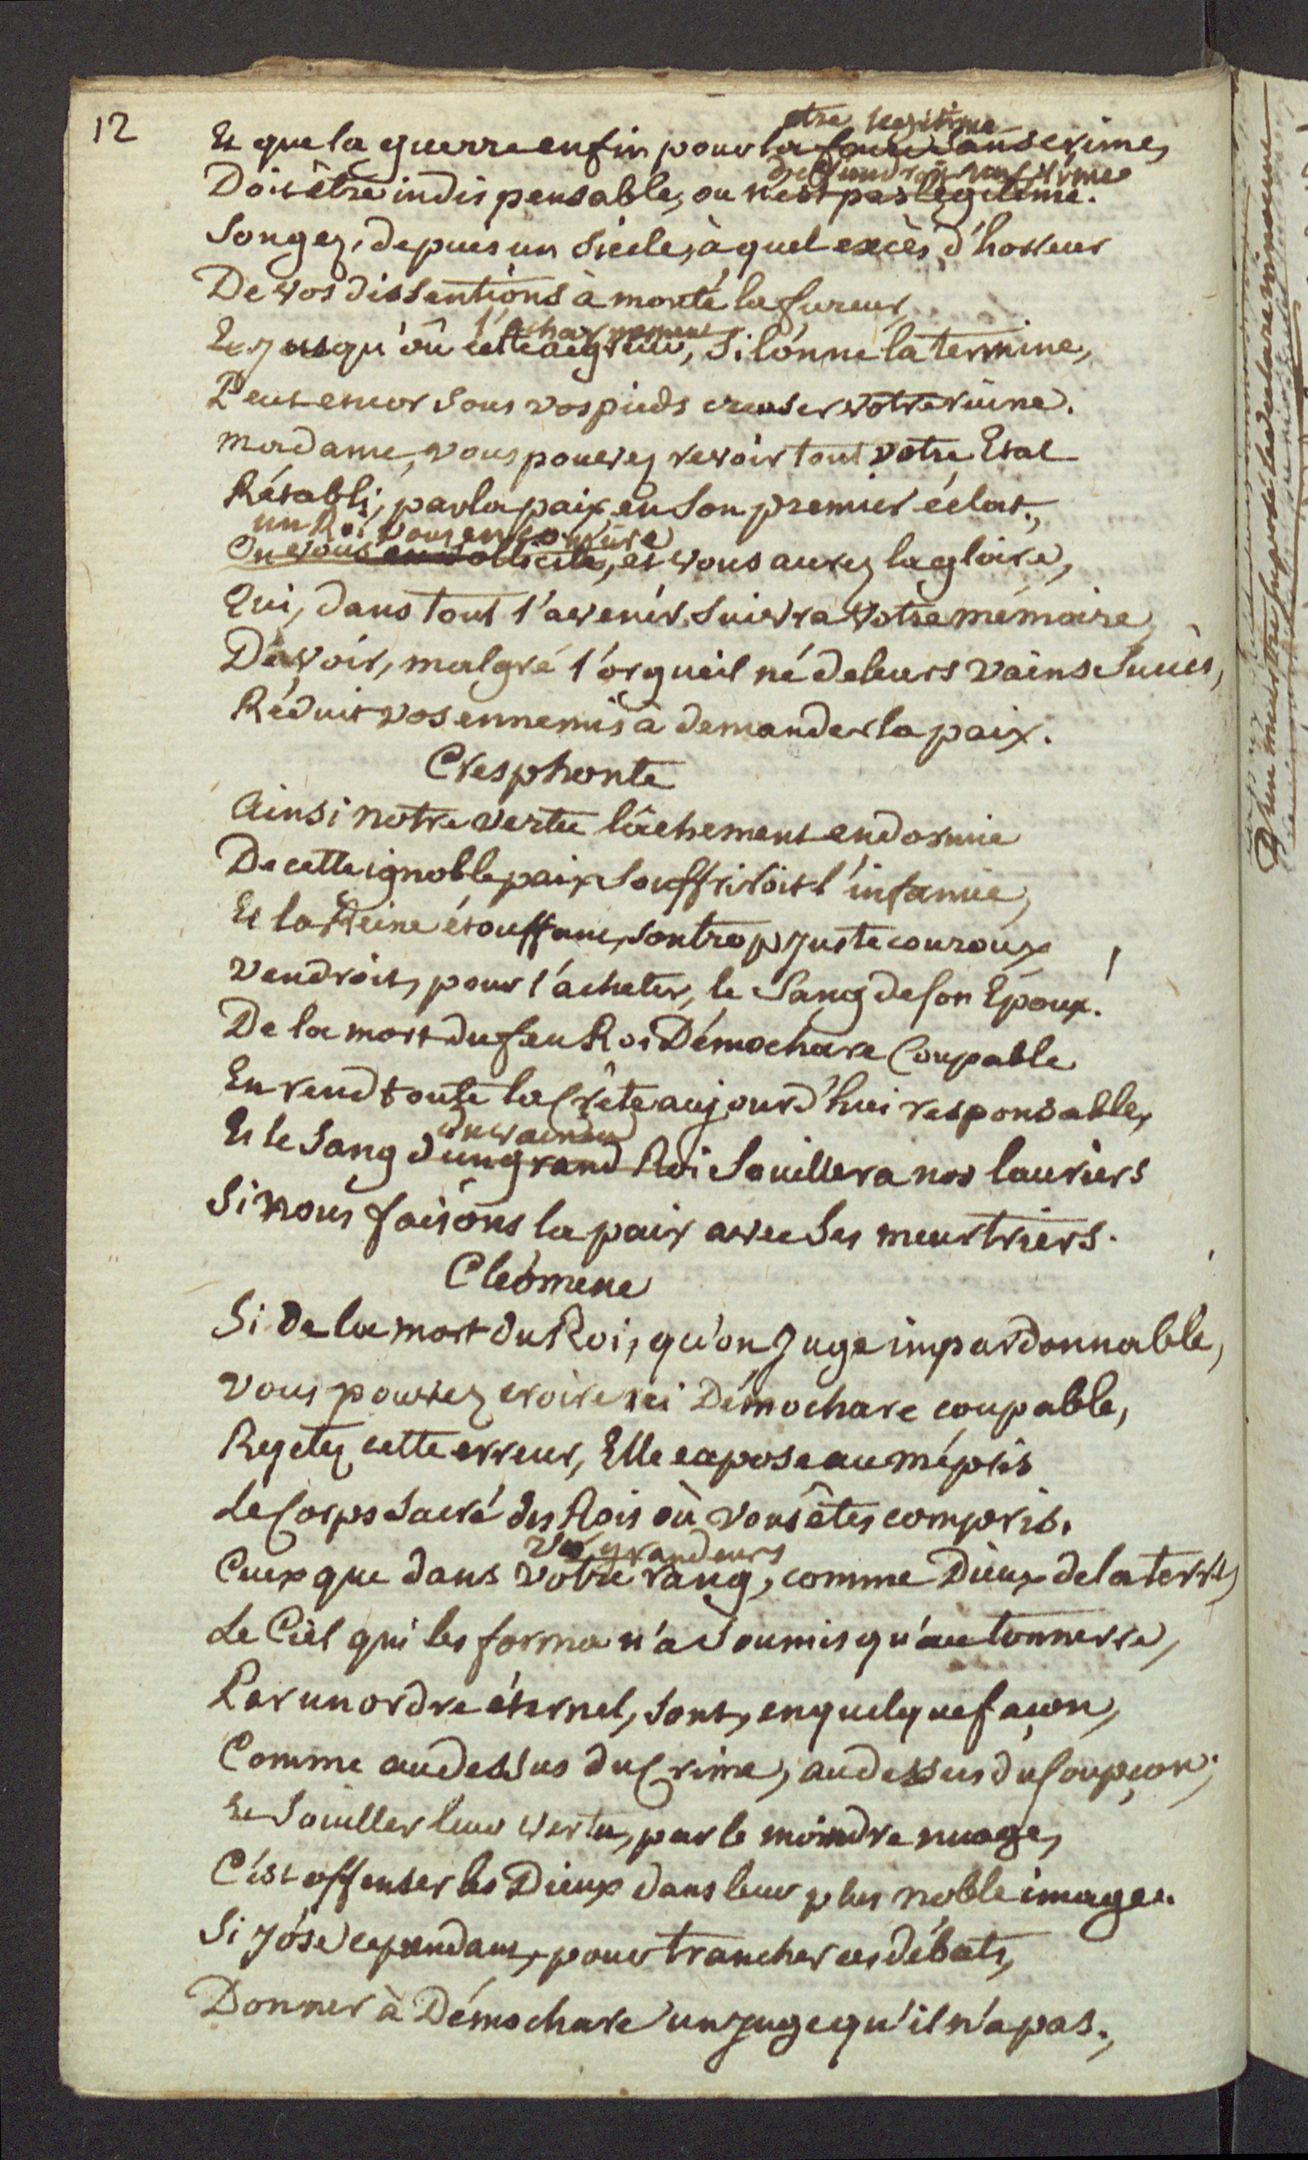 12
etre legitime
Et que la guerre enfin pour la faire sans crime,
deviendroit un crime
Doit être indispensable, ou n'est pas légitime.
Songez, depuis un Siecle, à quel excès d'horreur
De vos dissentions à monté la fureur,
l'acharnement
Et jusqu'où cette aigreur, Si l'on ne la termine,
Peut encor Sous vos pieds creuser votre ruine.
Madame, vous pouvez revoir tout votre Etat
Rétabli, par la paix, en Son premier éclat,
un Roi vous en conjure
On vous en Sollicite, et vous aurez la gloire,
Qui, dans tout l'avenir, Suivra votre mémoire,
D'avoir, malgré l'orgueil né de leurs vains Succès,
Réduit vos ennemis à demander la paix.
Cresphonte
Ainsi notre vertu lâchement endormie
De cette ignoble paix Souffriroit l'infamie,
Et la Reine étouffant, Son trop juste couroux
Vendroit, pour l'acheter, le Sang de Son Epoux!
De la mort du feu Roi Démochare Coupable
En rend toute la Crête aujourd'hui responsable,
Et le Sang d'un grand Roi Souillera nos lauriers
Si nous faisons la paix avec Ses meurtriers.
Cléomene
Si de la mort du Roi, qu'on Juge impardonnable,
Vous pouviez croire ici Démochare coupable,
Rejetez cette erreur, Elle expose au mépris
Le Corps Sacré des Rois où vous êtes compris.
vos grandeurs
Ceux que dans votre rang, comme Dieux de la terre,
Le Ciel qui les forma n'a Soumis qu'au tonnerre,
Par un ordre éternel, Sont, en quelque façon,
Comme audessus du Crime, audessus du Soupçon;
Et Souiller leur vertu, par le moindre nuage,
C'est offenser les Dieux dans leur plus noble image.
Si j'ose cependant, pour trancher ces débats,
Donner à Démochare un juge qu'il n'a pas,